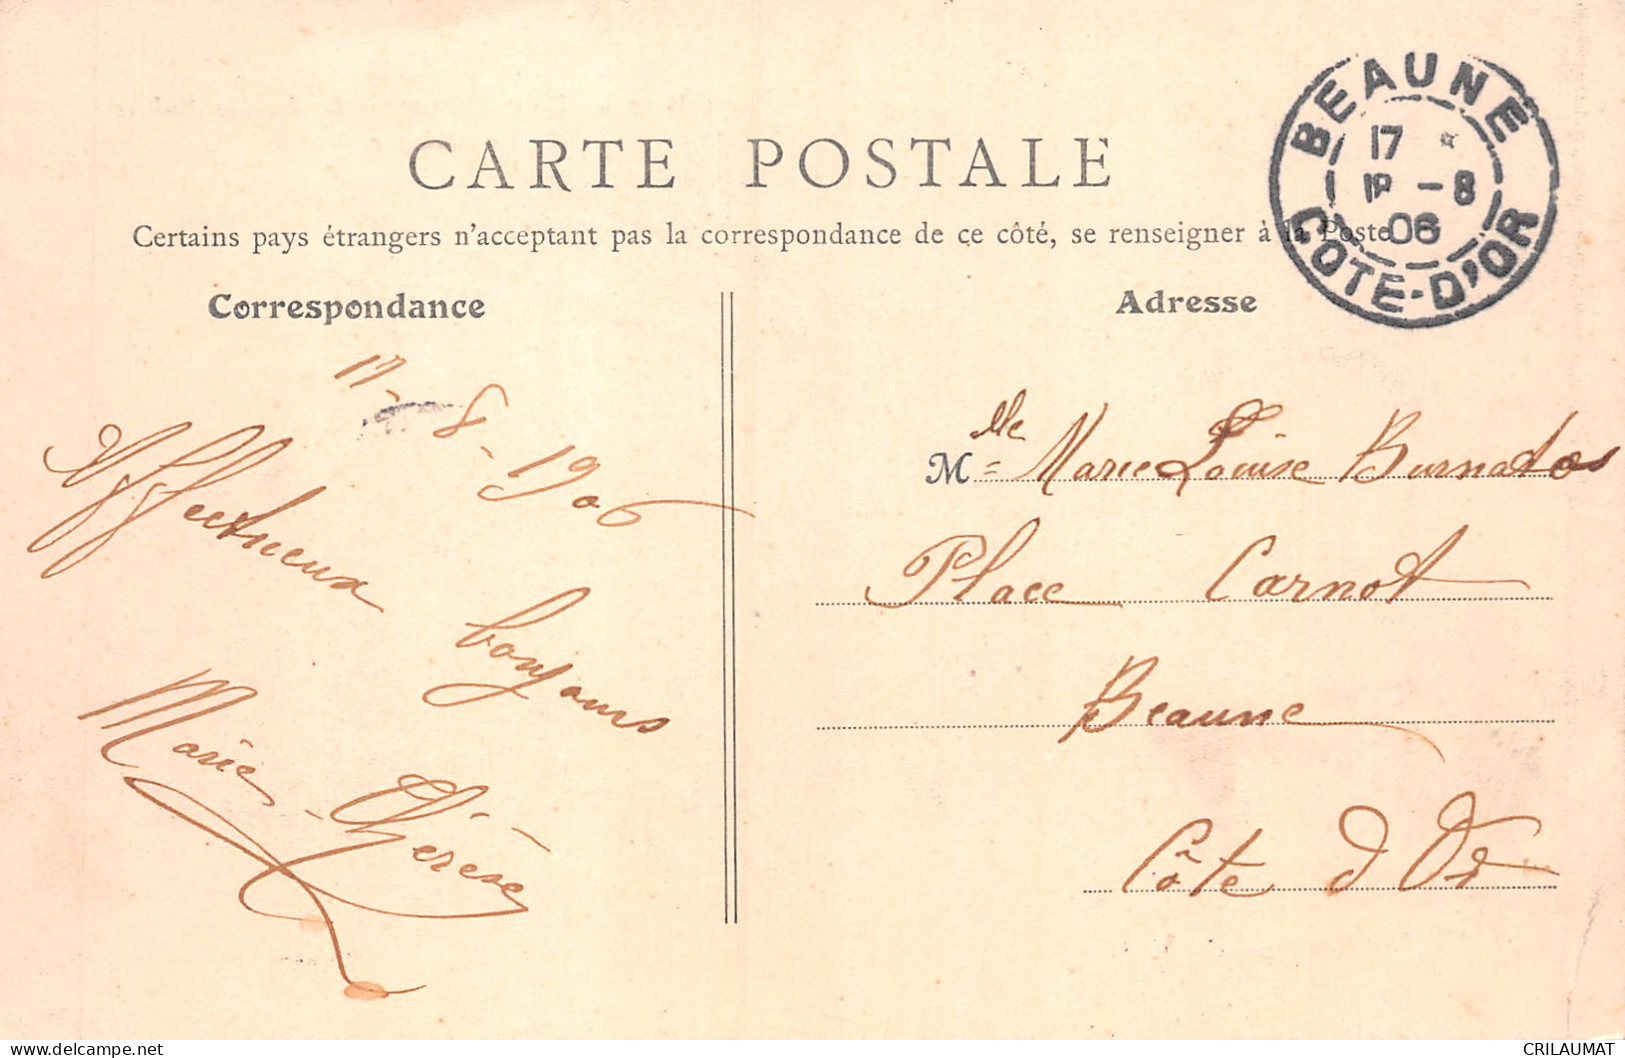 CARTE POSTALE
Certains pays étrangers n'acceptent pas la correspondance de ce côté, se renseigner à la Poste
BEAUNE
17
-8
06
CÔTE-D'OR
Correspondance
17-8-1906
Affectueux
bonjours
Marie-Thérèse
Adresse
Mlle Marie Louise
Place Carnot
Beaune
Côte d'Or
delcampe.net
CRILAUMAT